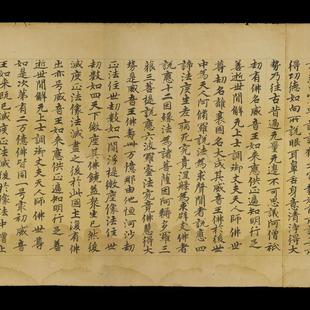 得功德如向所說眼耳鼻舌身意清淨得大
勢乃往古昔過無量无邊不可思議阿僧祇
劫有佛名威音王如來應供正遍知明行足
善逝世間解无上士調御丈夫天人師佛世
尊劫名離衰國名大成其威音王佛於彼世
中為天人阿脩羅說法為求聲聞者說應四
諦法度生老病死究竟涅槃為求辟支佛者
說應十二因緣法為諸菩薩因阿耨多羅三
藐三菩提說應六波羅蜜法究竟佛慧得大
勢是威音王佛壽卌万億那由他恒河沙劫
正法住世劫數如一閻浮提微塵像法住世
劫數如四天下微塵其佛饒益眾生已然後
滅度正法像法滅盡之後於此國土復有佛
出亦号威音王如來應供正遍知明行足善
逝世間解无上士調御丈夫天人師佛世尊
如是次第有二万億佛皆同一号最初威音
王如來既已滅度正法滅後於像法中增上